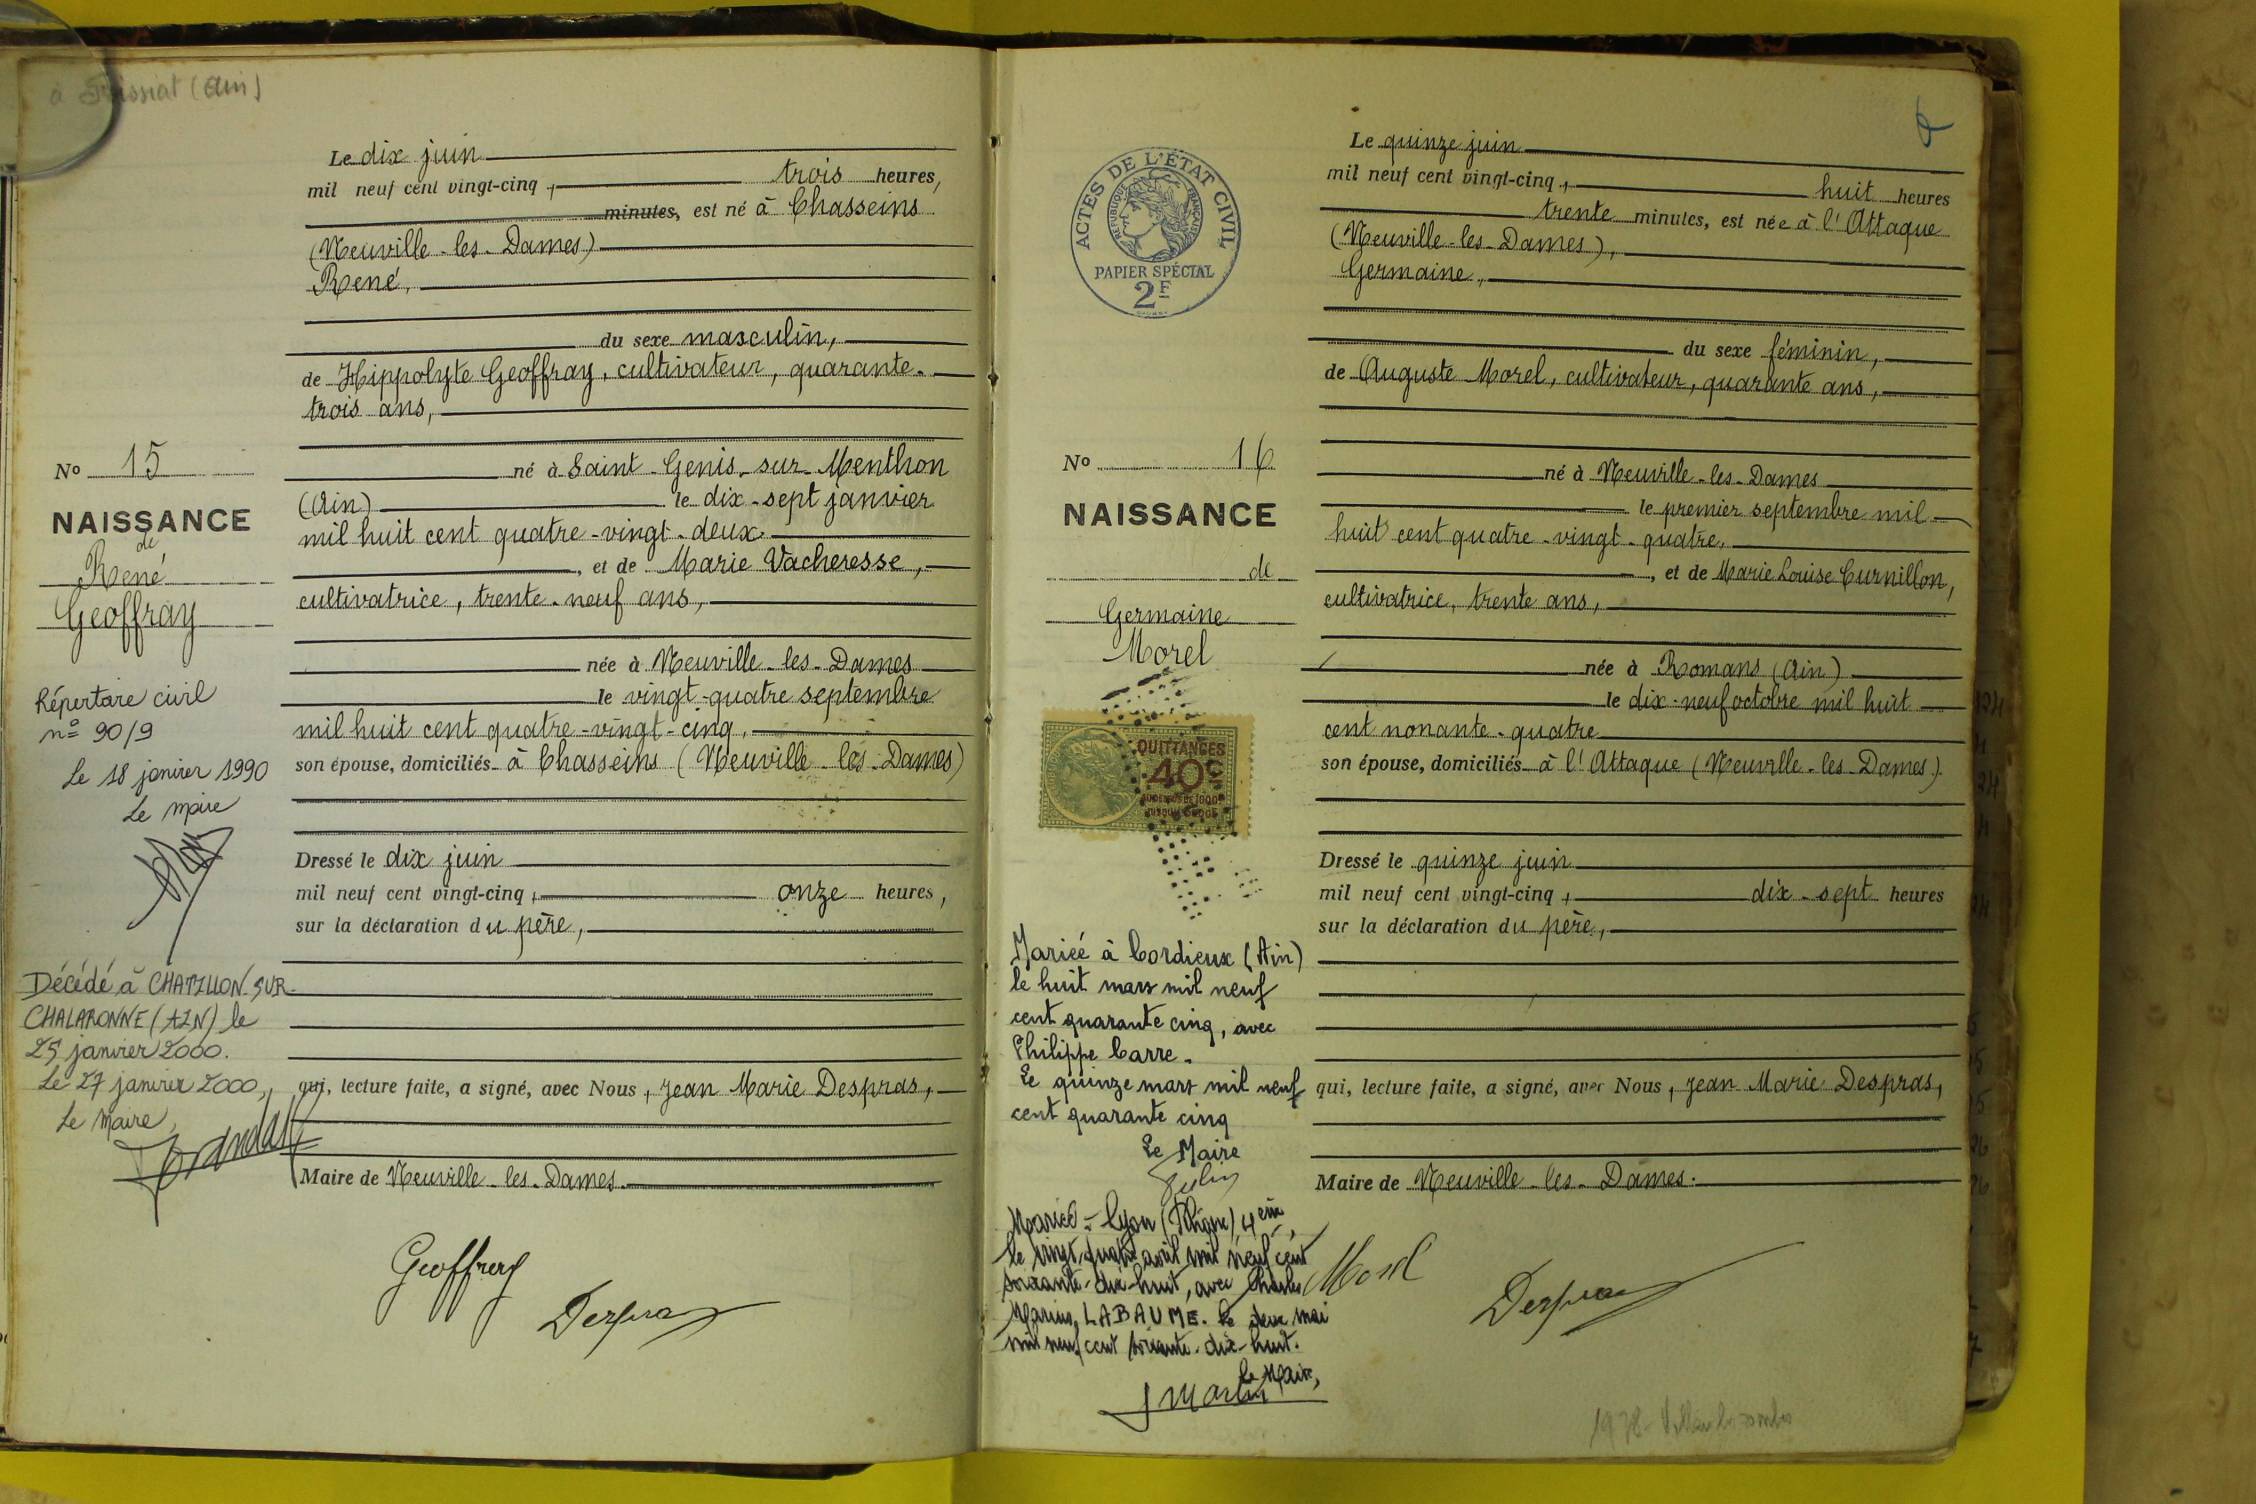 à (Ain)
Le dix juin
mil neuf cent vingt-cinq, trois heures,
minutes, est né à Chasseins
(Neuville-les-Dames)
René,
du sexe masculin,
de Hippolyte Geoffray, cultivateur, quarante-
trois ans,
né à Saint-Genis-sur-Menthon
(Ain) le dix-sept janvier
mil huit cent quatre-vingt-deux.
, et de Marie Vacheresse,
cultivatrice, trente-neuf ans,
née à Neuville-les-Dames
le vingt-quatre septembre
mil huit cent quatre-vingt-cinq,
son épouse, domiciliés à Chasseins (Neuville-les-Dames)
Dressé le dix juin
mil neuf cent vingt-cinq, onze heures,
sur la déclaration du père,
qui, lecture faite, a signé, avec Nous, Jean Marie Despras,
Maire de Neuville-les-Dames.
Geoffray
Despras
No 15
NAISSANCE
de
René
Geoffray
Répertoire civil
nº 90/9
Le 18 janvier 1990
Le maire
Décédé à CHATILLON-SUR-
CHALARONNE (AIN) le
25 janvier 2000.
Le 27 janvier 2000,
Le Maire,
ACTES DE L'ÉTAT CIVIL
RÉPUBLIQUE FRANÇAISE
PAPIER SPÉCIAL
2F
No 16
NAISSANCE
de
Germaine
Morel
QUITTANCES
40c
Mariée à Cordieux (Ain)
le huit mars mil neuf
cent quarante cinq, avec
Philippe Carre.
Le quinze mars mil neuf
cent quarante cinq
Le Maire
Mariée à Lyon (Rhône) 4ème,
le vingt-quatre avril mil neuf cent
soixante-dix-huit, avec Charles
Marius LABAUME. Le deux mai
mil neuf cent soixante-dix-huit.
Le Maire,
Le quinze juin
mil neuf cent vingt-cinq, huit heures
trente minutes, est née à l'Attaque
(Neuville-les-Dames),
Germaine,
du sexe féminin,
de Auguste Morel, cultivateur, quarante ans,
né à Neuville-les-Dames
le premier septembre mil
huit cent quatre-vingt-quatre,
, et de Marie Louise Curnillon,
cultivatrice, trente ans,
née à Romans (Ain)
le dix-neuf octobre mil huit
cent nonante-quatre
son épouse, domiciliés à l'Attaque (Neuville-les-Dames).
Dressé le quinze juin
mil neuf cent vingt-cinq, dix-sept heures
sur la déclaration du père,
qui, lecture faite, a signé, avec Nous, Jean Marie Despras,
Maire de Neuville-les-Dames.
Morel
Despras
1978-